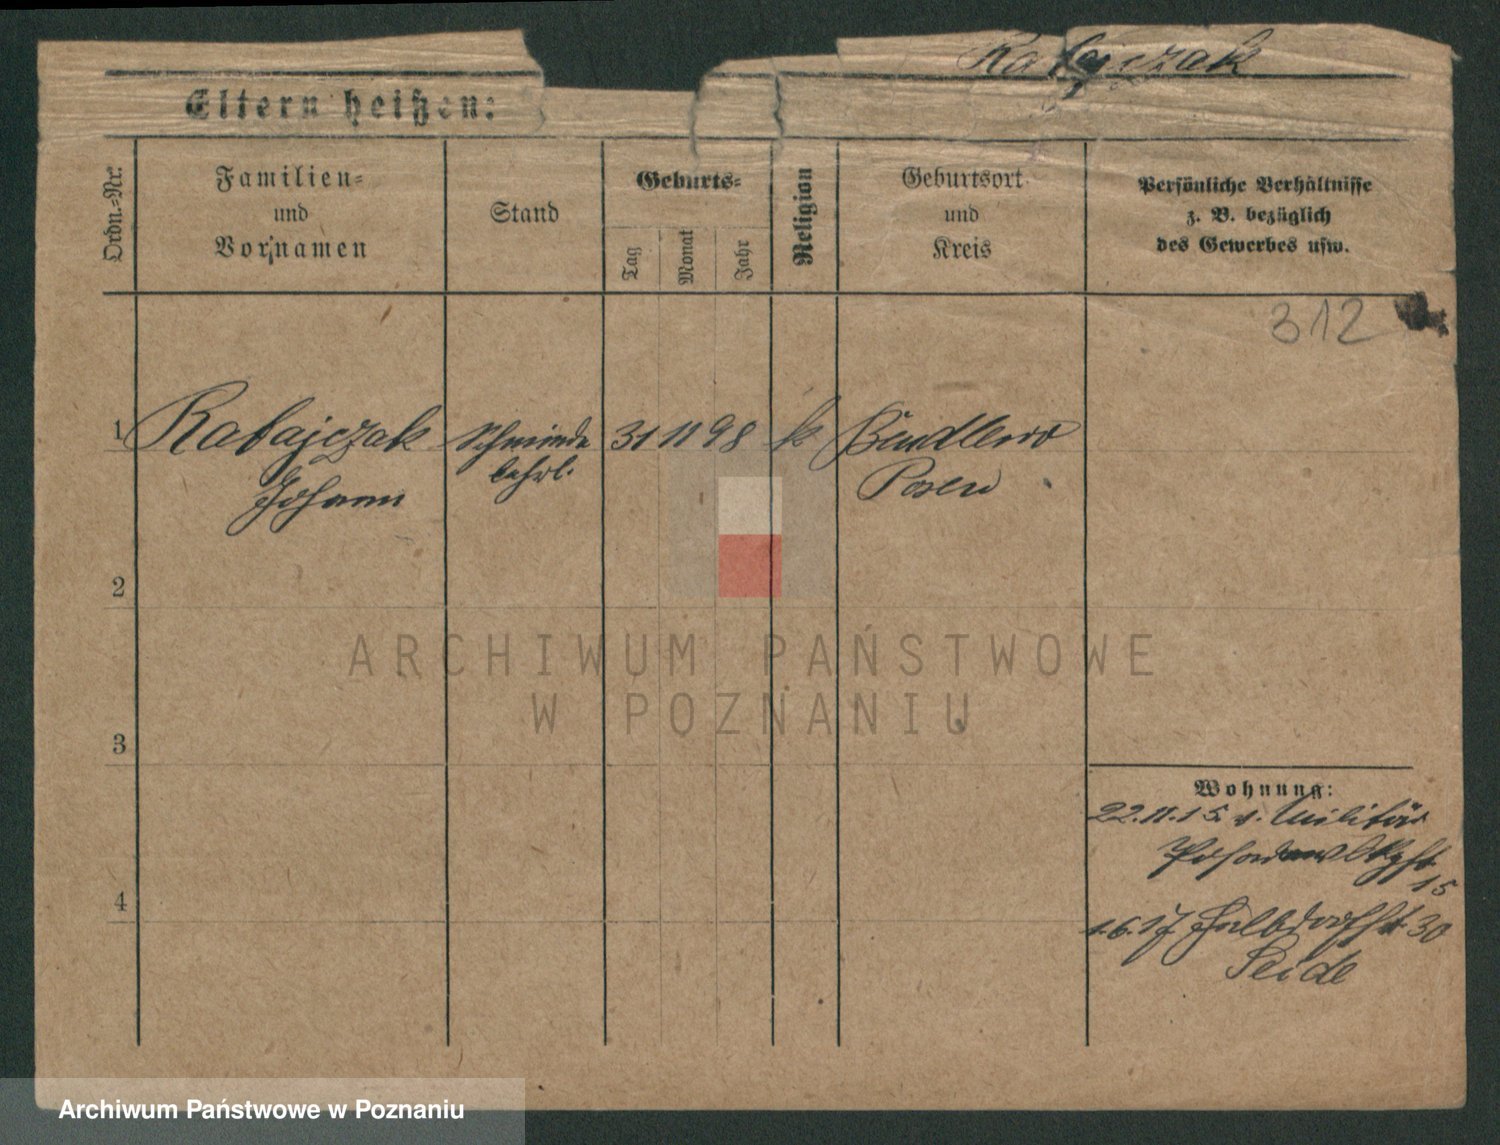 Rabajczak
Eltern heißen:
Ordn.-Nr.
Familien-
und
Vornamen
Stand
Geburts-
Tag
Monat
Jahr
Religion
Geburtsort
und
Kreis
Persönliche Verhältnisse
z. B. bezüglich
des Gewerbes usw.
312
1 Rabajczak 31 11 98 k Bendlewo
Johann lehrl. Posen
2
3
4
Wohnung:
22.11.15 v. Militär
15
1.6.17 Halbdorfst. 30
Seide
ARCHIWUM PAŃSTWOWE
W POZNANIU
Archiwum Państwowe w Poznaniu